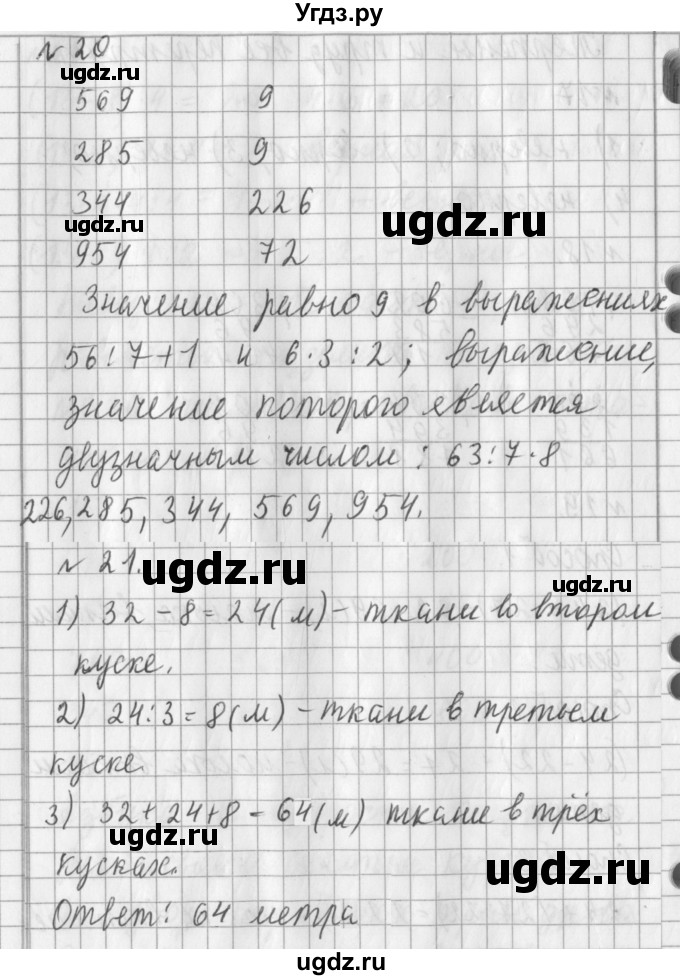 Угдз.ру
№ 20
ugdz.ru
569 9
285 9
344 226
ugdz.ru ugdz.ru
954 72
Значение равно 9 в выражениях
56:7+1 и 6·3:2; выражение,
значение которого является
двузначным числом: 63:7·8
226, 285, 344, 569, 954.
№ 21.
ugdz.ru ugdz.ru
1) 32 - 8 = 24 (м) - ткани во втором
куске.
2) 24:3 = 8 (м) - ткани в третьем
куске.
3) 32 + 24 + 8 = 64 (м) ткани в трёх
ugdz.ru
кусках.
ugdz.ru
Ответ: 64 метра
ugdz.ru